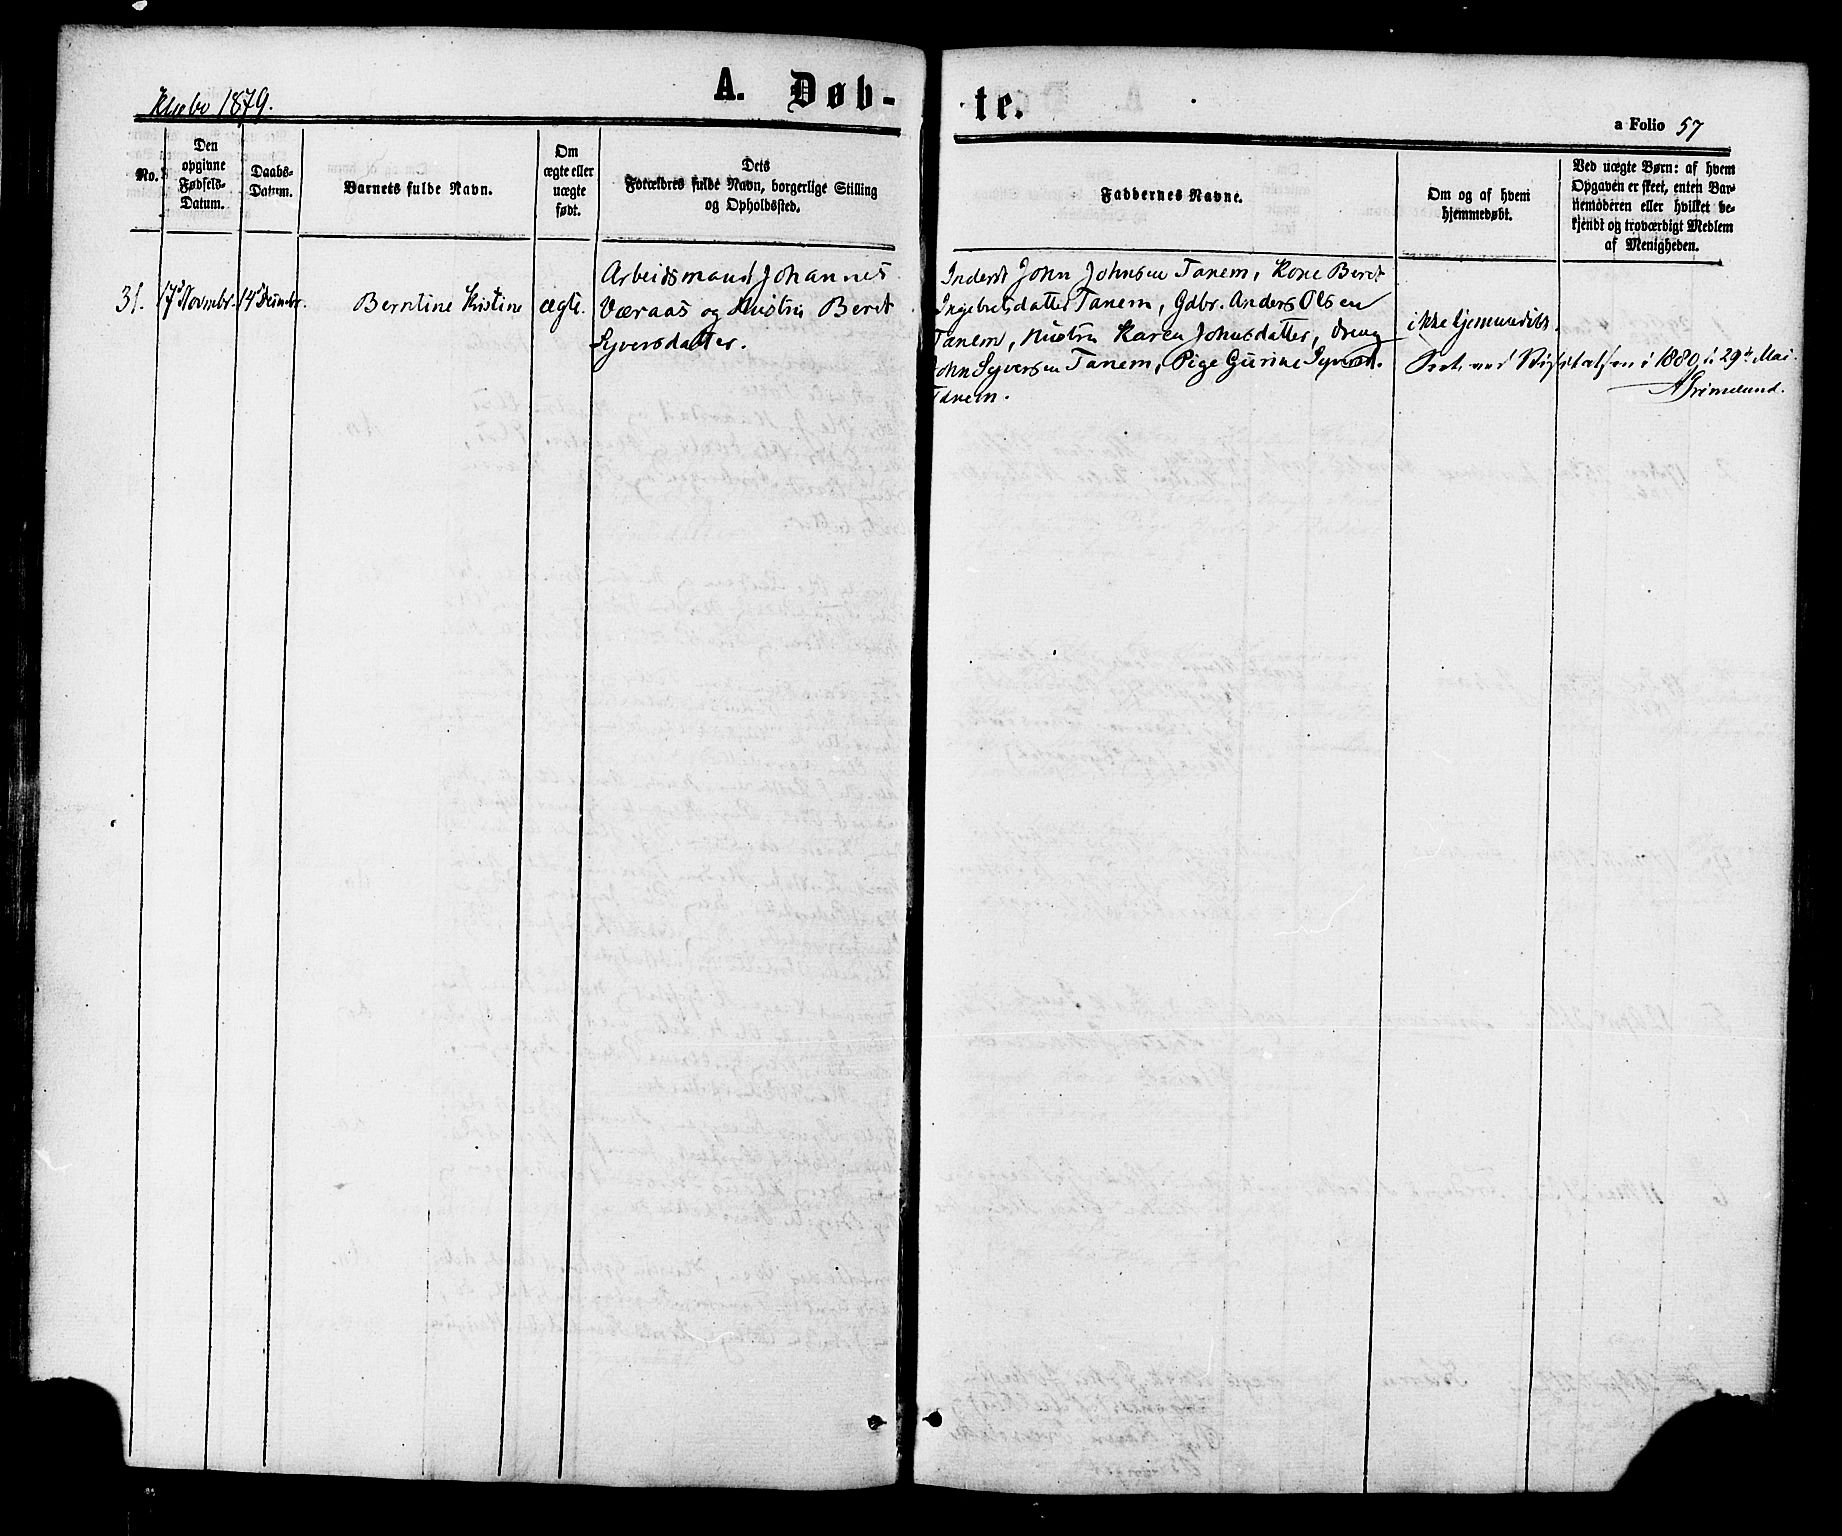 Klæbo 1879.
A. Døb-
te.
a Folio 57
No.
Den
opgivne
Fødsels-
Datum.
Daabs-
Datum.
Barnets fulde Navn.
Om
ægte eller
uægte
født.
Dets
Forældres fulde Navn, borgerlige Stilling
og Opholdssted.
Faddernes Navne.
Om og af hvem
hjemmedøbt.
Ved uægte Børn: af hvem
Opgaven er skeet, enten Bar-
nemoderen eller hvilket be-
kjendt og troværdigt Medlem
af Menigheden.
31.
17de Novmbr.
14de Decembr.
Berntine Kristine
ægte.
Arbeidsmand Johannes
Væraas og Hustru Beret
Syversdatter.
Inderst John Johnsen Tanem, Kone Beret
Ingebretsdatter Tanem, Gdbr. Anders Olsen
Tanem, Hustru Karen Johnsdatter, Dreng
John Syversen Tanem, Pige Gurine Syversd.
Tanem.
ikke hjemmedøbt.
Seet ved Visitatsen i 1880 d. 29de Mai.
A Grimelund.